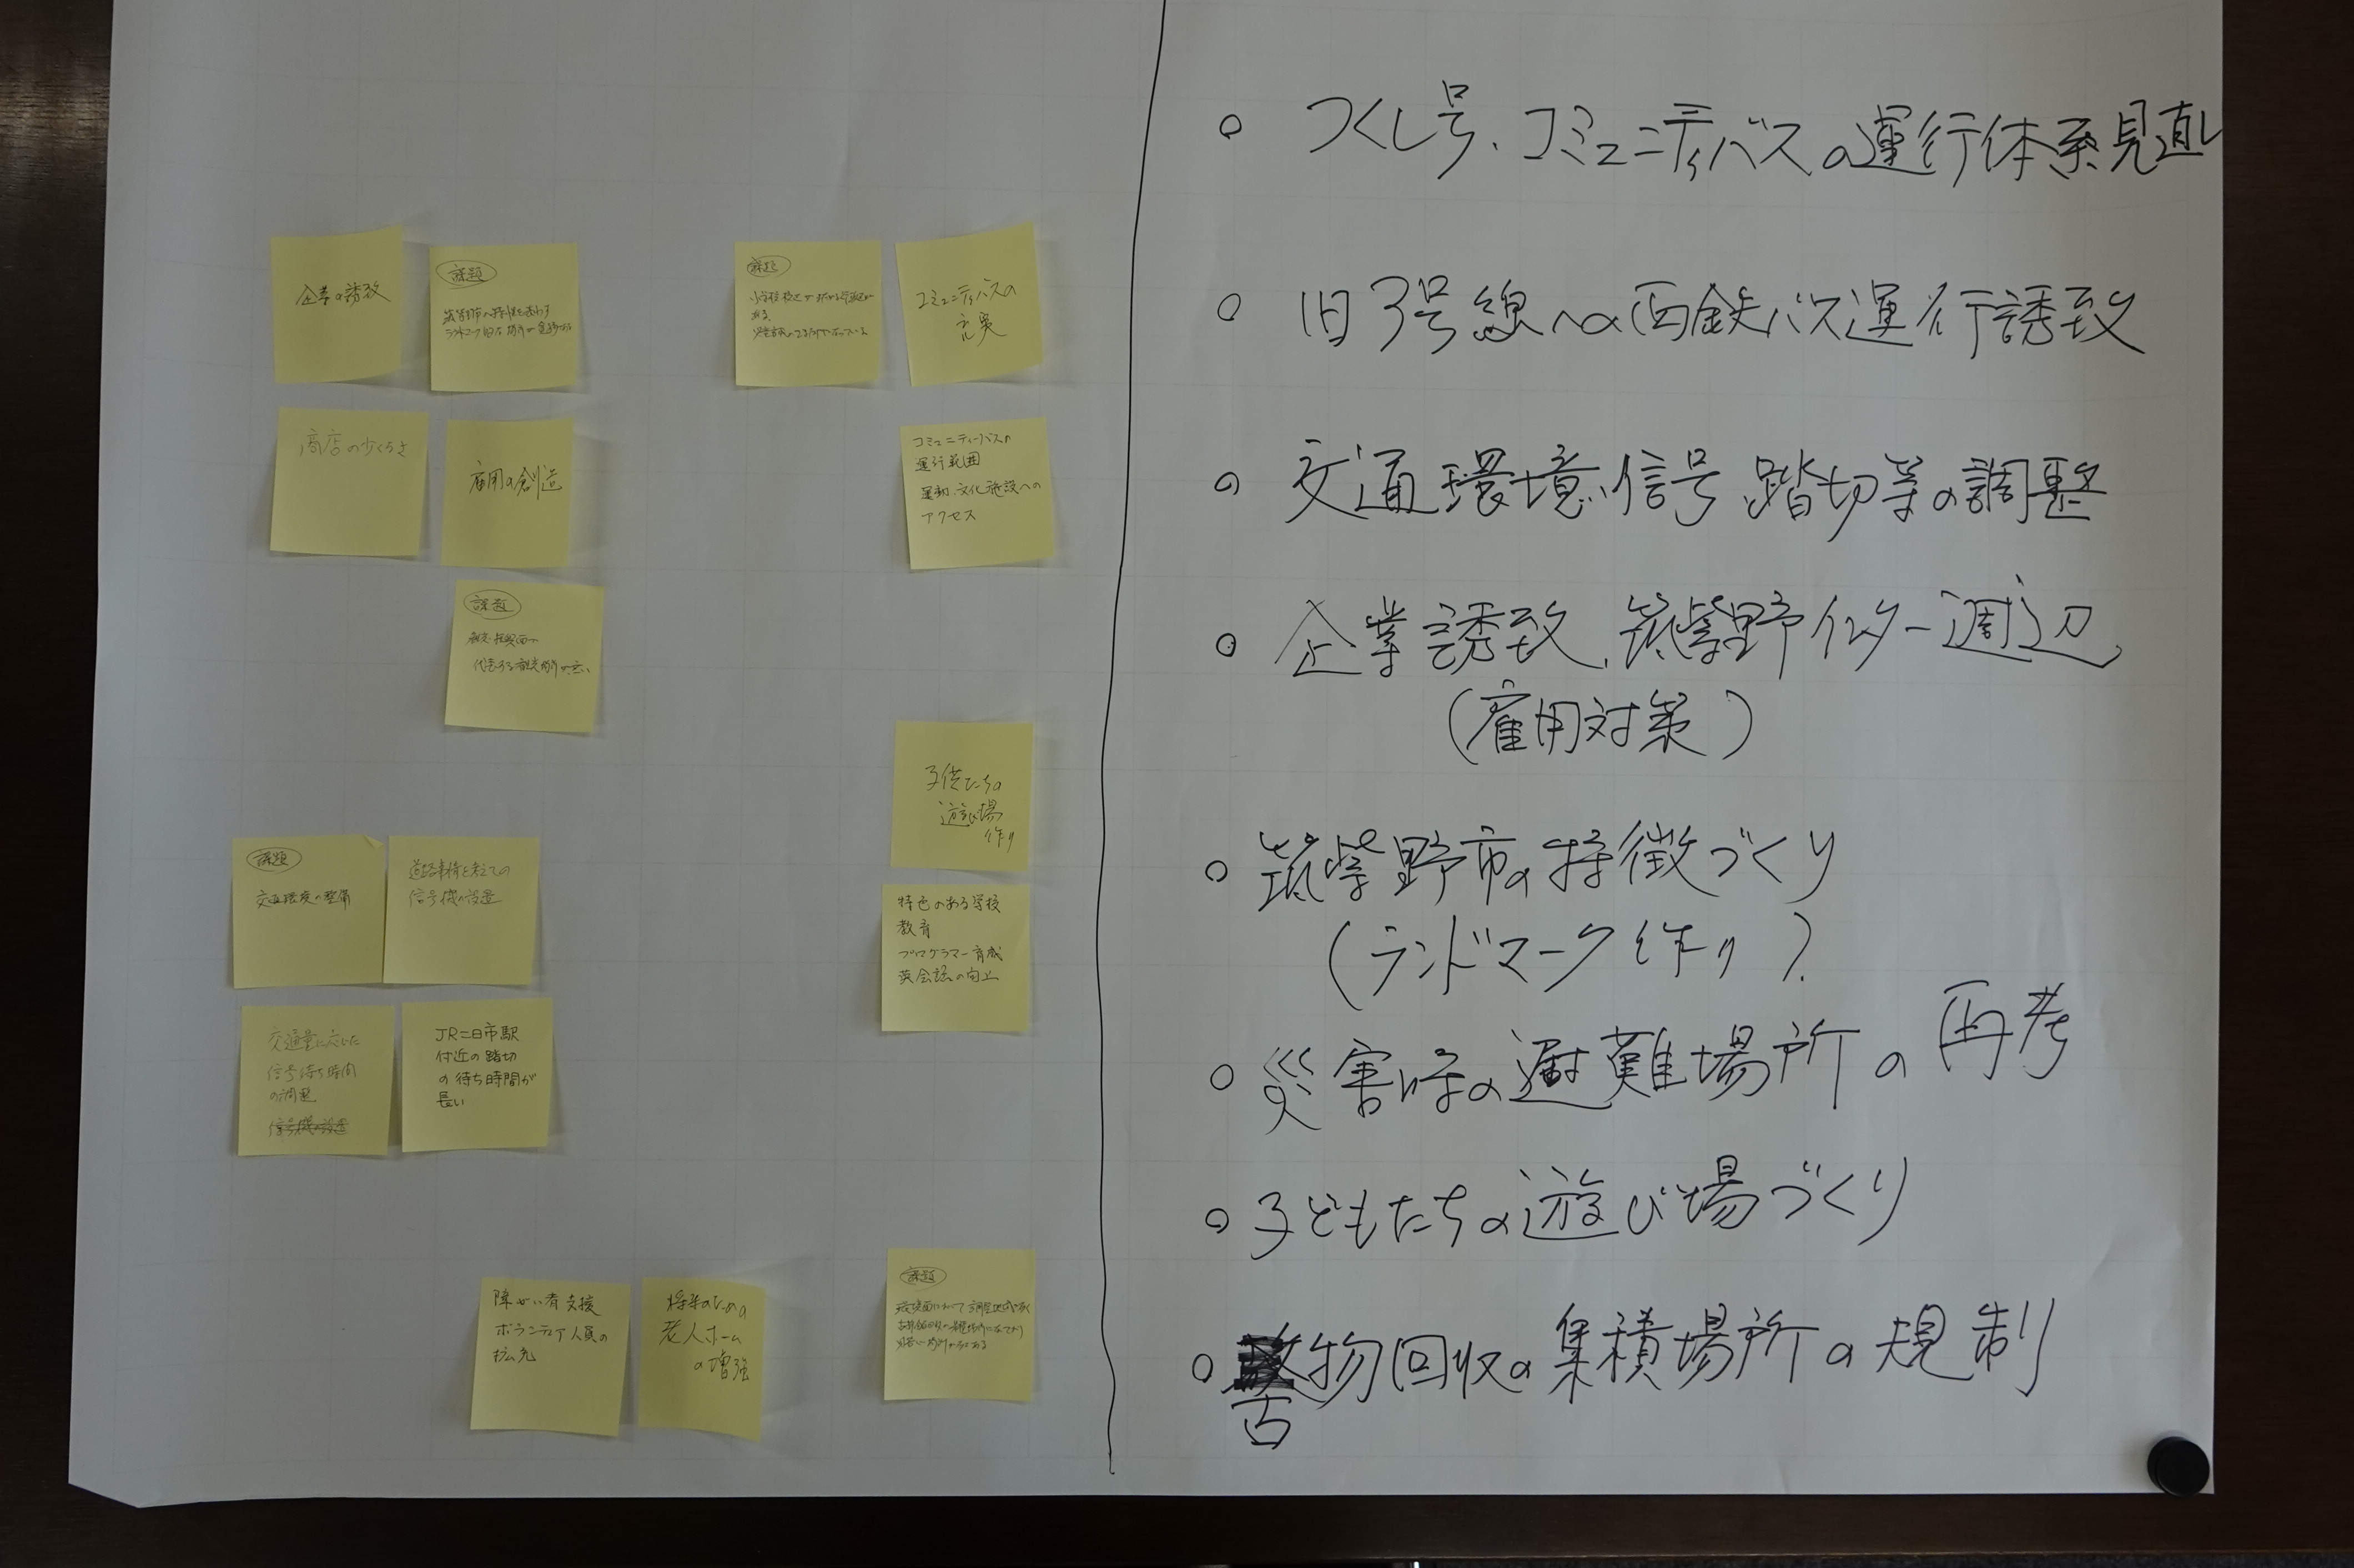 企業の誘致
課題
商店の少くなさ
雇用の創造
課題
課題
コミュニティバスの
充実
コミュニティーバスの
運行範囲
運動、文化施設への
アクセス
子供たちの
遊び場
作り
特色のある学校
教育
プログラマー育成
英会話の向上
課題
交通環境の整備
道路事情を考えての
信号機の設置
交通量に応じた
信号待ち時間
の調整
信号機の設置
JR二日市駅
付近の踏切
の待ち時間が
長い
障がい者支援
ボランティア人員の
拡充
将来のための
老人ホーム
の増強
課題
○ つくし号、コミュニティバスの運行体系見直し
○ 旧3号線への西鉄バス運行誘致
○ 交通環境、信号、踏切等の調整
○ 企業誘致、筑紫野インター周辺
(雇用対策)
○ 筑紫野市の特徴づくり
(ランドマーク作り?)
○ 災害時の避難場所の再考
○ 子どもたちの遊び場づくり
○ 古物回収の集積場所の規制